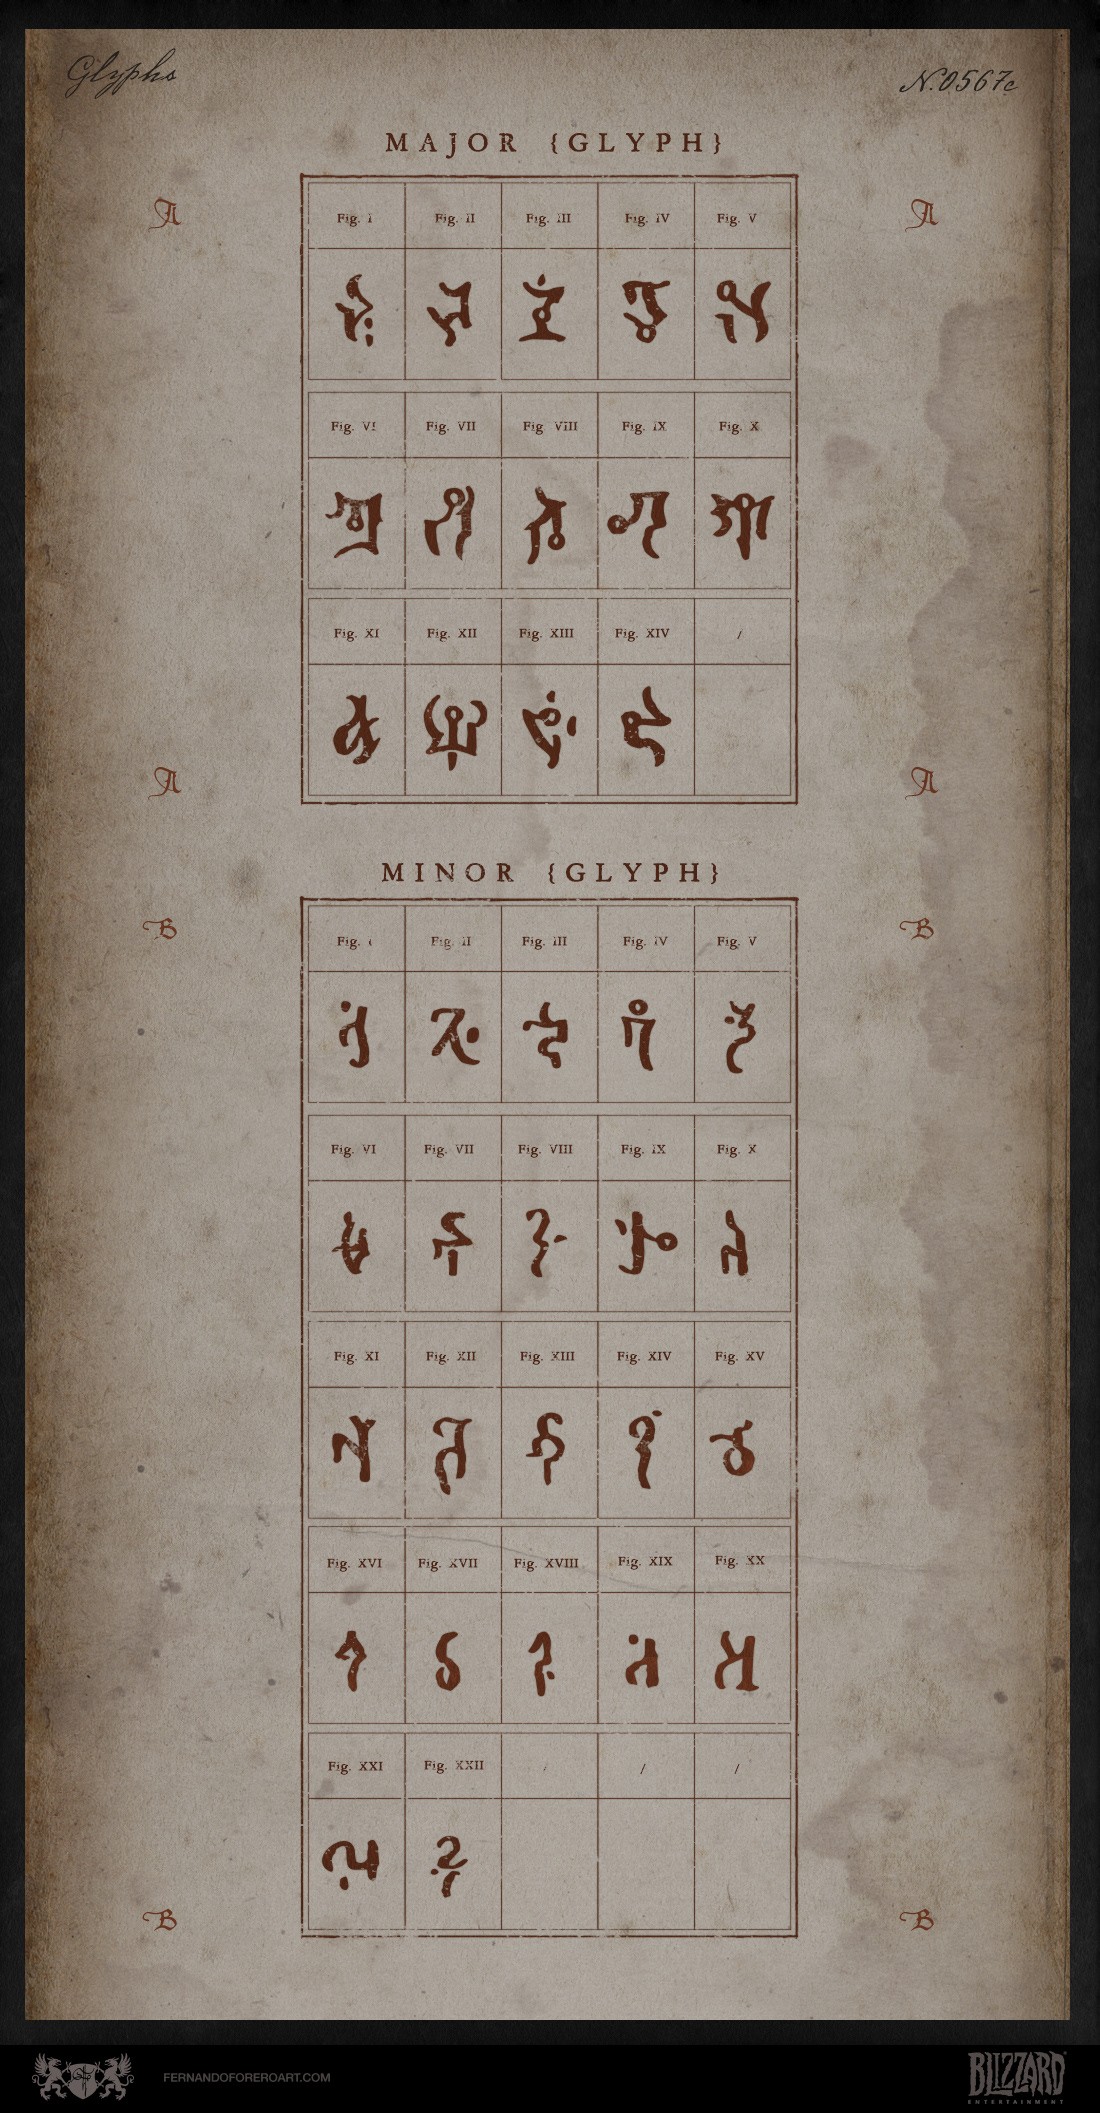 Glyphs
N.0567c
MAJOR {GLYPH}
A
A
Fig. I Fig. II Fig. III Fig. IV Fig. V
Fig. VI Fig. VII Fig VIII Fig. IX Fig. X
Fig. XI Fig. XII Fig. XIII Fig. XIV /
A
A
MINOR {GLYPH}
B
B
Fig. Fig. II Fig. III Fig. IV Fig. V
Fig. VI Fig. VII Fig. VIII Fig. IX Fig. X
Fig. XI Fig. XII Fig. XIII Fig. XIV Fig. XV
Fig. XVI Fig. XVII Fig. XVIII Fig. XIX Fig. XX
Fig. XXI Fig. XXII / / /
B
B
FERNANDOFOREROART.COM
BLIZZARD
ENTERTAINMENT